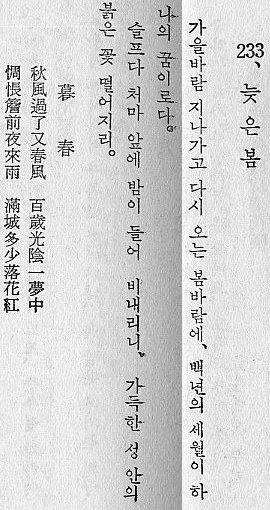 233、늦은 봄
가을바람 지나가고 다시 오는 봄바람에、백년의 세월이 하
나의 꿈이로다。
슬프다 처마 앞에 밤이 들어 비내리니、가득한 성 안의
붉은 꽃 떨어지리。
暮春
秋風過了又春風 百歲光陰一夢中
惆悵簷前夜來雨 滿城多少落花紅